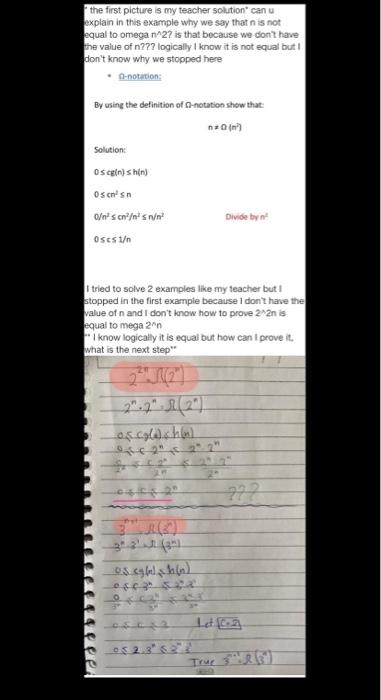 " the first picture is my teacher solution" can u
explain in this example why we say that n is not
equal to omega n^2? is that because we don't have
the value of n??? logically I know it is not equal but I
don't know why we stopped here
• Ω-notation:
By using the definition of Ω-notation show that:
n ≠ Ω (n²)
Solution:
0 ≤ cg(n) ≤ h(n)
0 ≤ cn² ≤ n
0/n² ≤ cn²/n² ≤ n/n² Divide by n²
0 ≤ c ≤ 1/n
I tried to solve 2 examples like my teacher but I
stopped in the first example because I don't have the
value of n and I don't know how to prove 2^2n is
equal to mega 2^n
"" I know logically it is equal but how can I prove it,
what is the next step""
2²ⁿ Ω(2ⁿ)
2ⁿ·2ⁿ Ω(2ⁿ)
0 ≤ cg(n) ≤ h(n)
0 ≤ c 2ⁿ ≤ 2ⁿ·2ⁿ
0/2ⁿ ≤ c 2ⁿ/2ⁿ ≤ 2ⁿ·2ⁿ/2ⁿ
0 ≤ c ≤ 2ⁿ ???
3ⁿ⁺¹ Ω(3ⁿ)
3ⁿ·3¹ Ω(3ⁿ)
0 ≤ cg(n) ≤ h(n)
0 ≤ c3ⁿ ≤ 3ⁿ·3¹
0/3ⁿ ≤ c3ⁿ/3ⁿ ≤ 3ⁿ·3/3ⁿ
0 ≤ c ≤ 3 Let c=2
0 ≤ 2·3ⁿ ≤ 3ⁿ·3
True 3ⁿ⁺¹ Ω(3ⁿ)